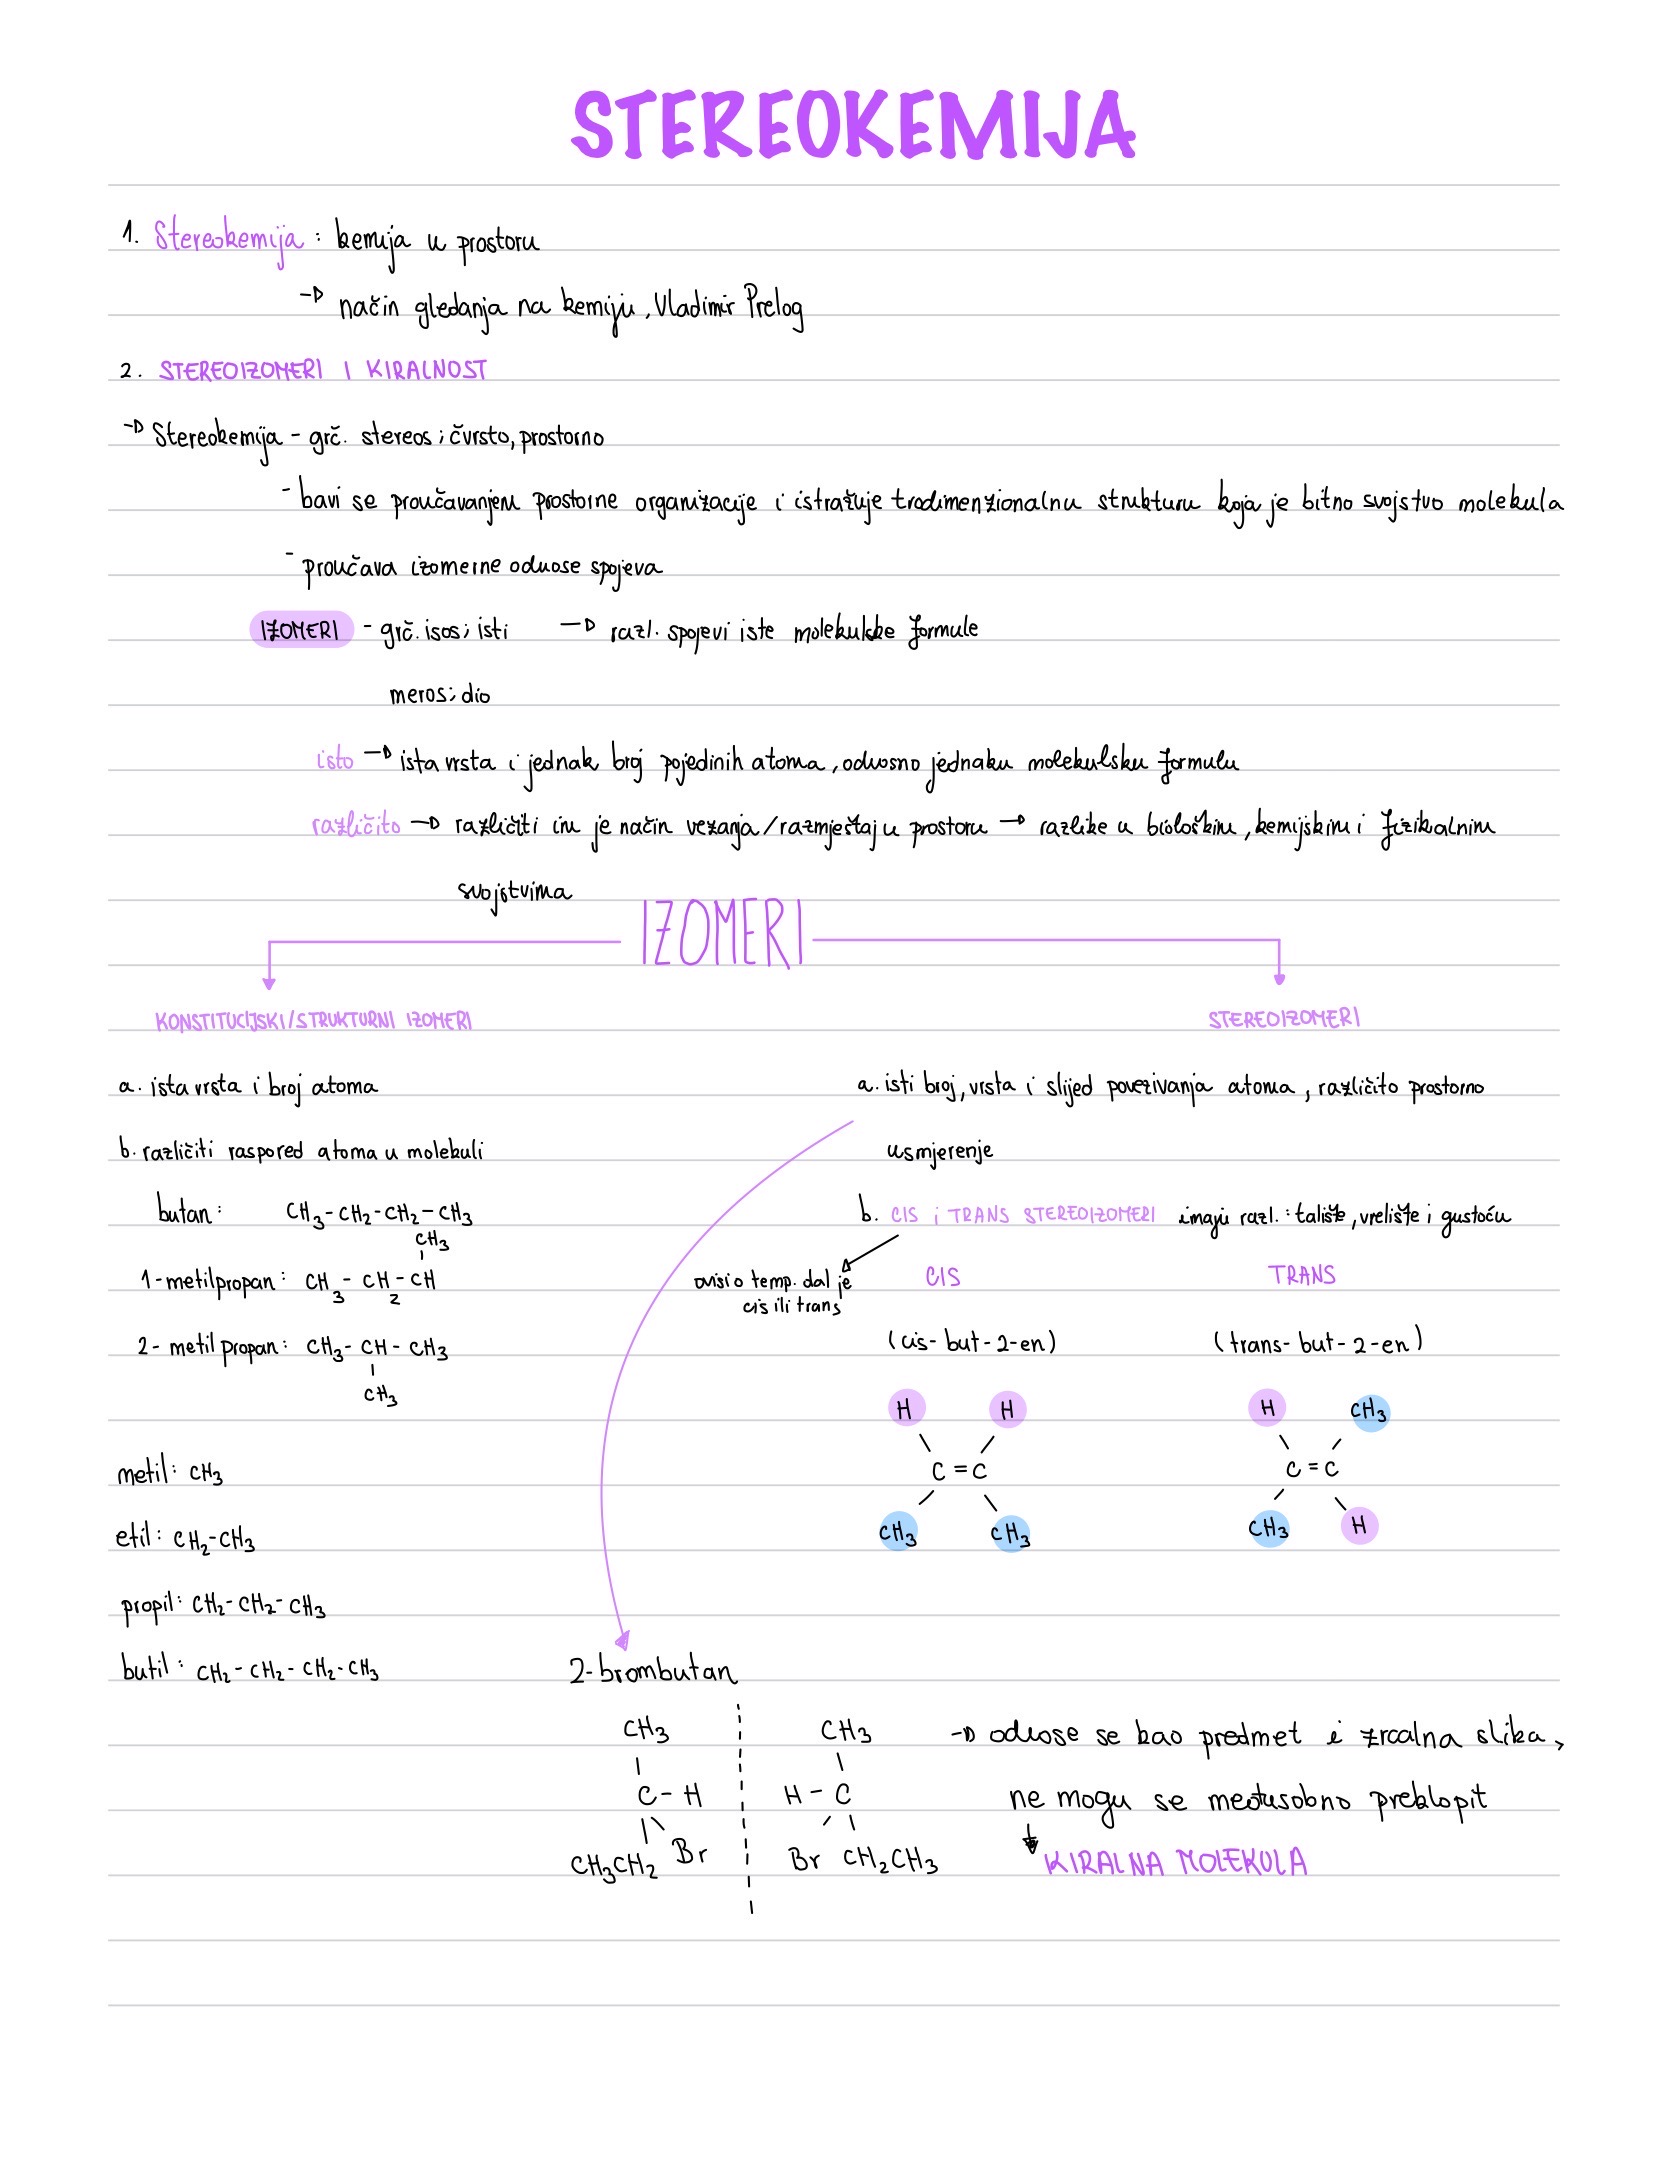 STEREOKEMIJA
1. Stereokemija : kemija u prostoru
→ način gledanja na kemiju, Vladimir Prelog
2. STEREOIZOMERI I KIRALNOST
→ Stereokemija - grč. stereos; čvrsto, prostorno
- bavi se proučavanjem prostorne organizacije i istražuje trodimenzionalnu strukturu koja je bitno svojstvo molekula
- proučava izomerne odnose spojeva
IZOMERI - grč. isos; isti → razl. spojevi iste molekulske formule
meros; dio
isto → ista vrsta i jednak broj pojedinih atoma, odnosno jednaku molekulsku formulu
različito → različiti im je način vezanja/razmještaj u prostoru → razlike u biološkim, kemijskim i fizikalnim
svojstvima
IZOMERI
KONSTITUCIJSKI/STRUKTURNI IZOMERI
a. ista vrsta i broj atoma
b. različiti raspored atoma u molekuli
butan: CH3-CH2-CH2-CH3
CH3
1-metilpropan: CH3-CH2-CH
2-metilpropan: CH3-CH-CH3
CH3
metil: CH3
etil: CH2-CH3
propil: CH2-CH2-CH3
butil: CH2-CH2-CH2-CH3
STEREOIZOMERI
a. isti broj, vrsta i slijed povezivanja atoma, različito prostorno
usmjerenje
b. CIS i TRANS STEREOIZOMERI imaju razl.: talište, vrelište i gustoću
ovisi o temp. dal je
cis ili trans
CIS TRANS
(cis-but-2-en) (trans-but-2-en)
H H H CH3
C=C C=C
CH3 CH3 CH3 H
2-brombutan
CH3 CH3 → odnose se kao predmet i zrcalna slika,
C-H H-C ne mogu se međusobno preklopit
CH3CH2 Br Br CH2CH3 KIRALNA MOLEKULA